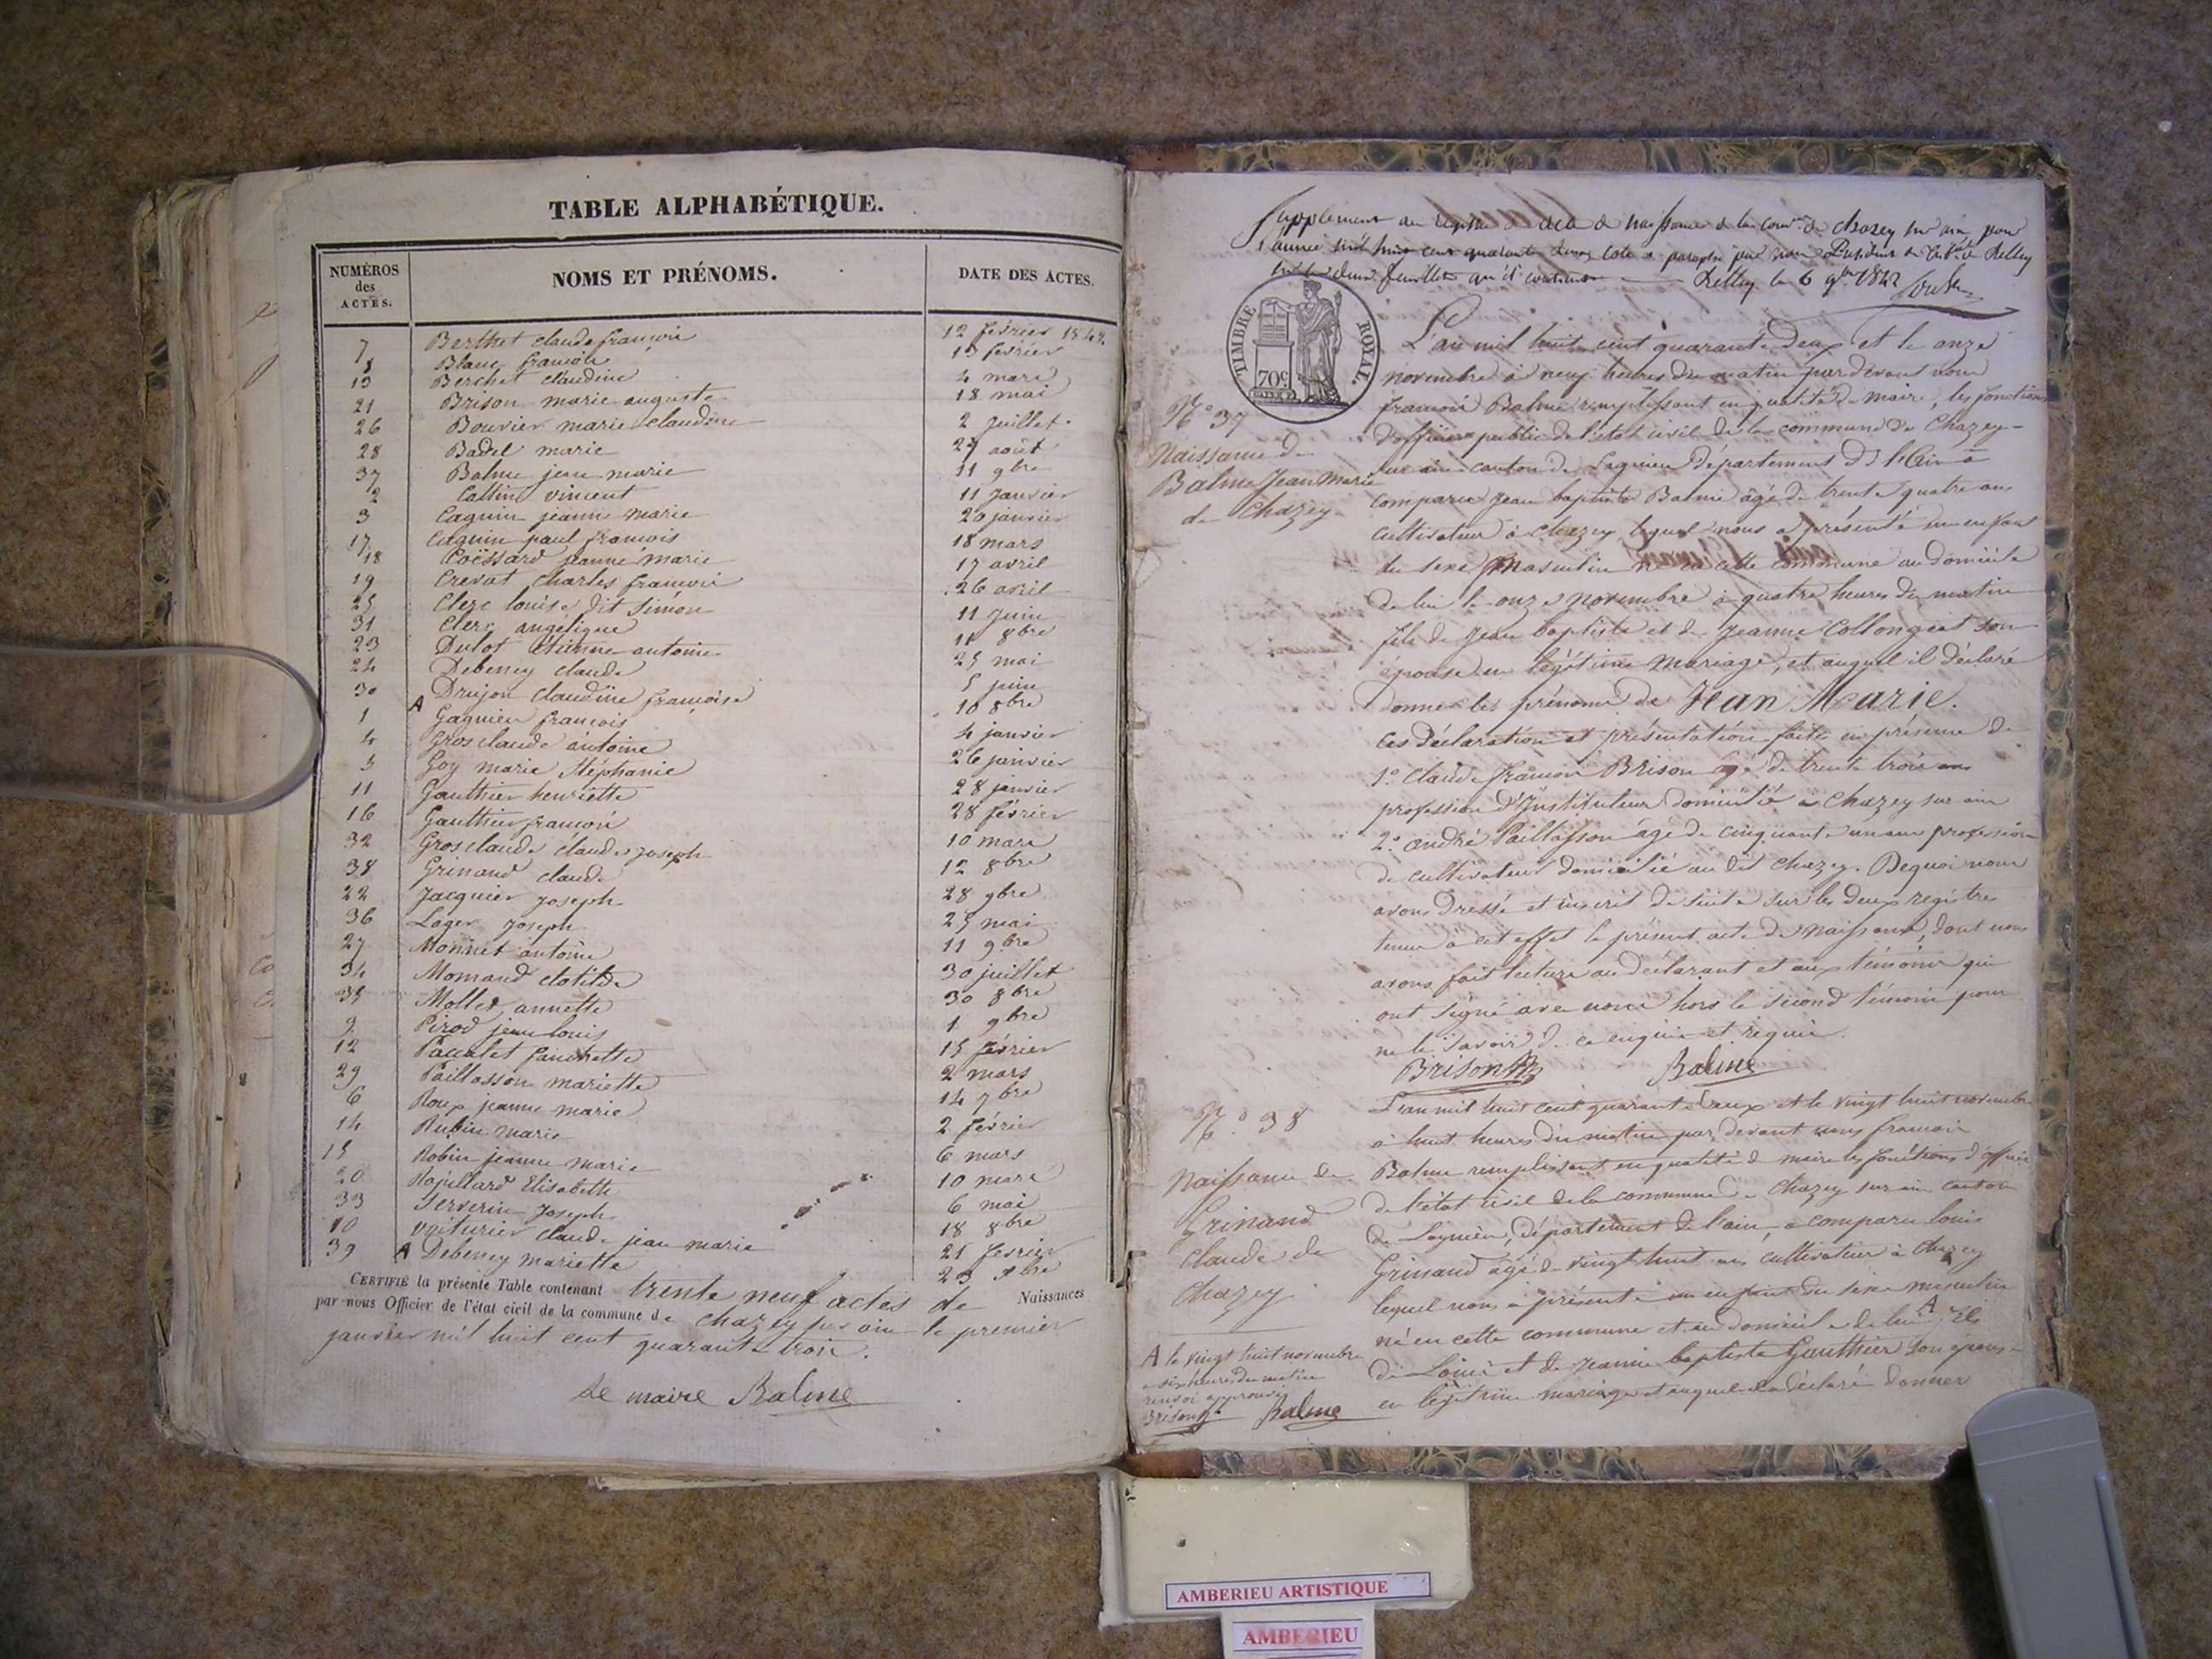 TABLE ALPHABÉTIQUE.
NUMÉROS des ACTES. NOMS ET PRÉNOMS. DATE DES ACTES.
7 Berthet claude françois 12 février 1842.
8 Blanc françois 13 février
13 Berchet claudine 4 mars
21 Brison marie auguste 18 mai
26 Bouvier marie claudine 2 juillet
28 Badel marie 27 août
37 Balme jean marie 11 9bre
2 Cattin vincent 11 janvier
3 Caguin jeanne marie 20 janvier
17 Caguin paul françois 18 mars
18 Coëssard jeanne marie 17 avril
19 Crevat charles françois 26 avril
25 Clerc louise dit Simon 11 juin
31 Clerc angelique 11 8bre
23 Dulot étienne antoine 25 mai
24 Debeney claude 5 juin
30 Drujon claudine françoise 10 8bre
1 A Gagnieu françois 4 janvier
4 Grosclaude antoine 26 janvier
5 Goy marie Stéphanie 28 janvier
11 Gauthier henriette 28 février
16 Gauthier françois 10 mars
32 Grosclaude claude joseph 12 8bre
38 Grinand claude 28 9bre
22 Jacquier joseph 25 mai
36 Lager joseph 11 9bre
27 Monnet antoine 30 juillet
34 Mornand clotilde 30 8bre
35 Mollet annette 1 9bre
9 Pirod jean louis 15 février
12 Paccalet fanchette 2 mars
29 Paillasson mariette 14 7bre
6 Roux jeanne marie 2 février
14 Rubin marie 6 mars
15 Robin jeanne marie 10 mars
20 Rapillard Elisabeth 6 mai
33 Serverin joseph 18 8bre
10 voiturier claude jean marie 21 février
39 A Debeney mariette 23 xbre
CERTIFIÉ la présente Table contenant trente neuf actes de Naissances
par nous Officier de l'état civil de la commune de Chazey sur ain le premier
janvier mil huit cent quarante trois.
Le maire Balme
Supplément au registre des actes de naissance de la comne de chazey sur ain pour
l'année mil huit cent quarante deux coté et paraphé par nous Président du
les deux feuillets qu'il contient Belley le 6 9bre 1842
TIMBRE ROYAL.
70c
L'an mil huit cent quarante deux et le onze
novembre à neuf heures du matin pardevant nous
françois Balme remplissant en qualité de maire, les fonctions
d'officier public de l'état civil de la commune de Chazey-
sur ain canton de Lagnieu département de l'Ain a
comparu jean baptiste Balme âgé de trente quatre ans
cultivateur à chazey lequel nous a présenté un enfant
du sexe masculin né en cette commune au domicile
de lui le onze novembre à quatre heures du matin
fils de jean baptiste et de jeanne Collongeat son
épouse en légitime mariage, et auquel il déclare
donner les prénoms de Jean Marie.
Ces déclaration et présentation faites en présence de
1.o Claude françois Brison âgé de trente trois ans
profession d'Instituteur domicilié à Chazey sur ain
2.o andré Paillasson âgé de cinquante un ans profession
de cultivateur domicilié au dit Chazey. De quoi nous
avons dressé et inscrit de suite sur les deux registres
tenus à cet effet le présent acte de naissance, dont nous
avons fait lecture au déclarant et aux témoins qui
ont signé avec nous hors le second témoin pour
ne le savoir de ce enquis et requis.
Brison Balme
N.o 37
Naissance de
Balme Jean Marie
de Chazey
L'an mil huit cent quarante deux et le vingt huit novembre
à huit heures du matin par devant nous françois
Balme remplissant en qualité de maire les fonctions d'officier
de l'état civil de la commune de Chazey sur ain canton
de Lagnieu, département de l'ain, a comparu louis
Grinand âgé de vingt huit ans cultivateur à chazey
lequel nous a présenté un enfant du sexe masculin
né en cette commune et au domicile de lui A fils
de Louis et de jeanne baptiste Gauthier son épouse
en légitime mariage et auquel il a déclaré donner
N.o 38
Naissance de
Grinand
Claude de
Chazey
A le vingt huit novembre
à six heures du matin
renvoi approuvé
Brison Balme
AMBERIEU ARTISTIQUE
AMBERIEU